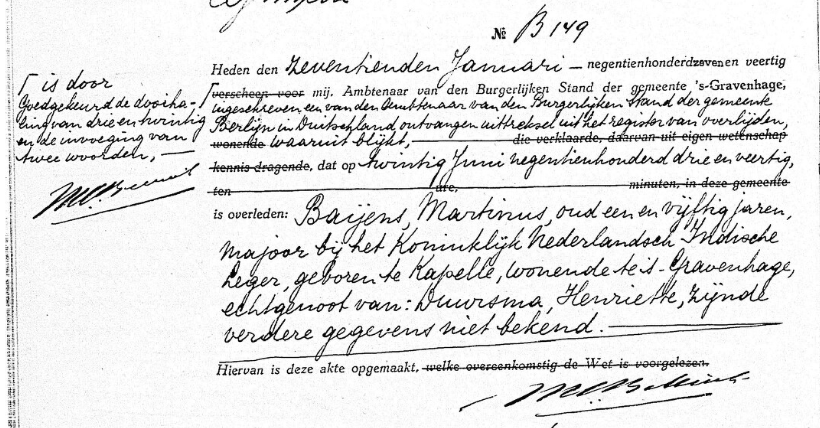 № B 149
Heden den zeventienden Januari — negentienhonderdzevenen veertig
┌ is door
verscheen voor mij, Ambtenaar van den Burgerlijken Stand der gemeente 's-Gravenhage,
Goedgekeurd de doorha-
ingeschreven een van den Ambtenaar van den Burgerlijken Stand der gemeente
ling van drie en twintig
Berlijn in Duitschland ontvangen uittreksel uit het register van overlijden,
en de invoeging van
wonende waaruit blijkt, die verklaarde, daarvan uit eigen wetenschap
twee woorden, —
kennis dragende, dat op twintig Juni negentienhonderd drie en veertig,
ten ure, minuten, in deze gemeente
is overleden: Baijens, Martinus, oud een en vijftig jaren,
majoor bij het Koninklijk Nederlandsch Indische
Leger, geboren te Kapelle, wonende te 's-Gravenhage,
echtgenoot van: Duursma, Henriette, zijnde
verdere gegevens niet bekend. —
Hiervan is deze akte opgemaakt, welke overeenkomstig de Wet is voorgelezen.